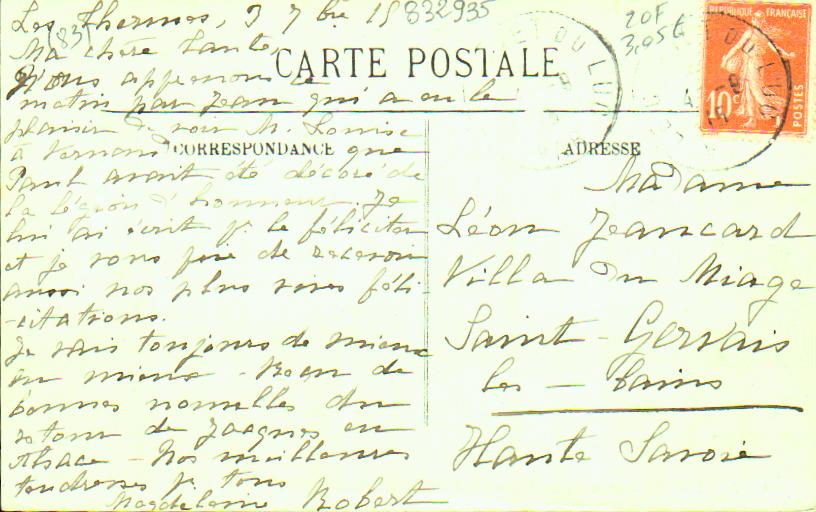 Les Thermes, 3 7bre 15 832935
20F
3,05€
(83)
Ma chère Tante,
Nous apprenons ce
CARTE POSTALE
matin par Jean qui a eu le
plaisir de voir M. Louise
à Vernans que
CORRESPONDANCE
ADRESSE
Paul avait été décoré de
la légion d'honneur. Je
lui ai écrit pr le féliciter
et je vous prie de recevoir
aussi nos plus vives féli-
-citations.
Je vais toujours de mieux
en mieux - Reçu de
bonnes nouvelles du
retour de Jacques en
Alsace - Nos meilleures
tendresses pr tous
Magdeleine Robert
Madame
Léon Jeancard
Villa du Miage
Saint-Gervais
les - bains
Haute Savoie
RÉPUBLIQUE FRANÇAISE
10c
POSTES
DU LUC
DU LUC